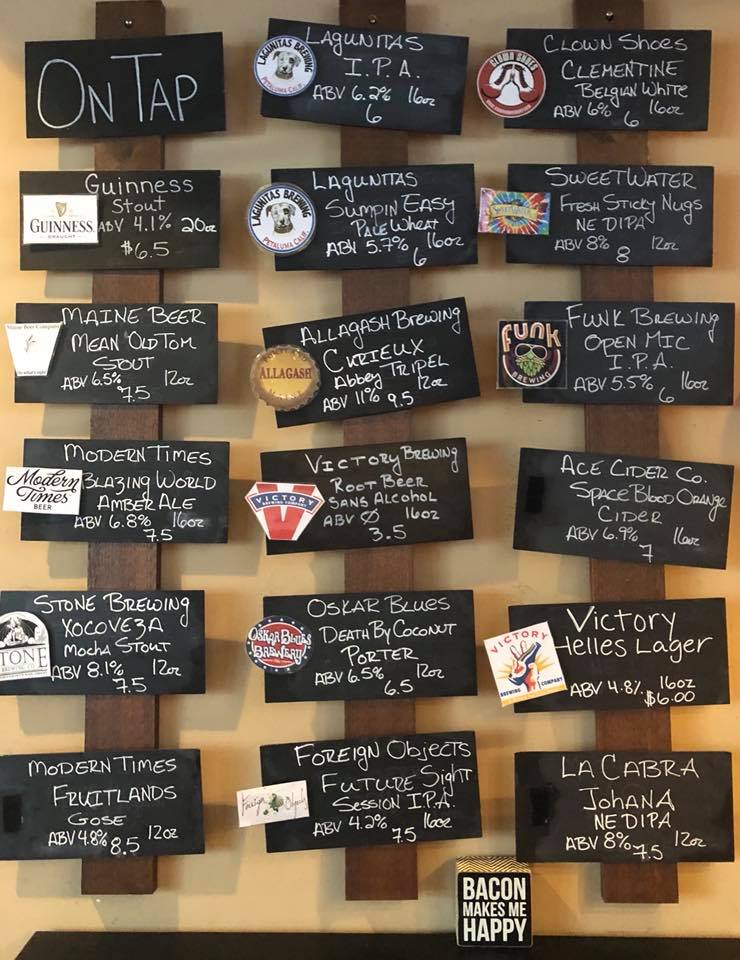 ON TAP
Guinness
Stout
GUINNESS
DRAUGHT
ABV 4.1% 20oz
$6.5
MAINE BEER
Maine Beer Company
MEAN OLD TOM
STOUT
Do what's right
ABV 6.5% 12oz
7.5
MODERN TIMES
Modern Times
BEER
BLAZING WORLD
AMBER ALE
ABV 6.8% 16oz
7.5
STONE BREWING
XOCOVEZA
MOCHA STOUT
TONE
ABV 8.1% 12oz
7.5
MODERN TIMES
FRUITLANDS
GOSE
ABV 4.8% 12oz
8.5
LAGUNITAS
LAGUNITAS BREWING
PETALUMA CALIF.
I.P.A.
ABV 6.2% 16oz
6
LAGUNITAS
LAGUNITAS BREWING
PETALUMA CALIF.
SUMPIN EASY
PALE WHEAT
ABV 5.7% 16oz
6
ALLAGASH BREWING
ALLAGASH
CURIEUX
Abbey TRIPEL
ABV 11% 12oz
9.5
VICTORY BREWING
VICTORY
BREWING COMPANY
ROOT BEER
SANS ALCOHOL
ABV Ø 16oz
3.5
OSKAR BLUES
OSKAR BLUES
BREWERY
DEATH BY COCONUT
PORTER
ABV 6.5% 12oz
6.5
FOREIGN OBJECTS
Foreign Objects
FUTURE SIGHT
SESSION I.P.A.
ABV 4.2% 16oz
7.5
CLOWN SHOES
CLOWN SHOES
CLEMENTINE
BELGIAN WHITE
ABV 6% 16oz
6
SWEETWATER
SweetWater
FRESH STICKY NUGS
NE DIPA
ABV 8% 12oz
8
FUNK BREWING
FUNK
BREWING
OPEN MIC
I.P.A.
ABV 5.5% 16oz
6
ACE CIDER CO.
SPACE BLOOD ORANGE
CIDER
ABV 6.9% 16oz
7
Victory
VICTORY
BREWING COMPANY
Helles Lager
ABV 4.8% 16oz
$6.00
LA CABRA
JOHANA
NE DIPA
ABV 8% 12oz
7.5
BACON
MAKES ME
HAPPY